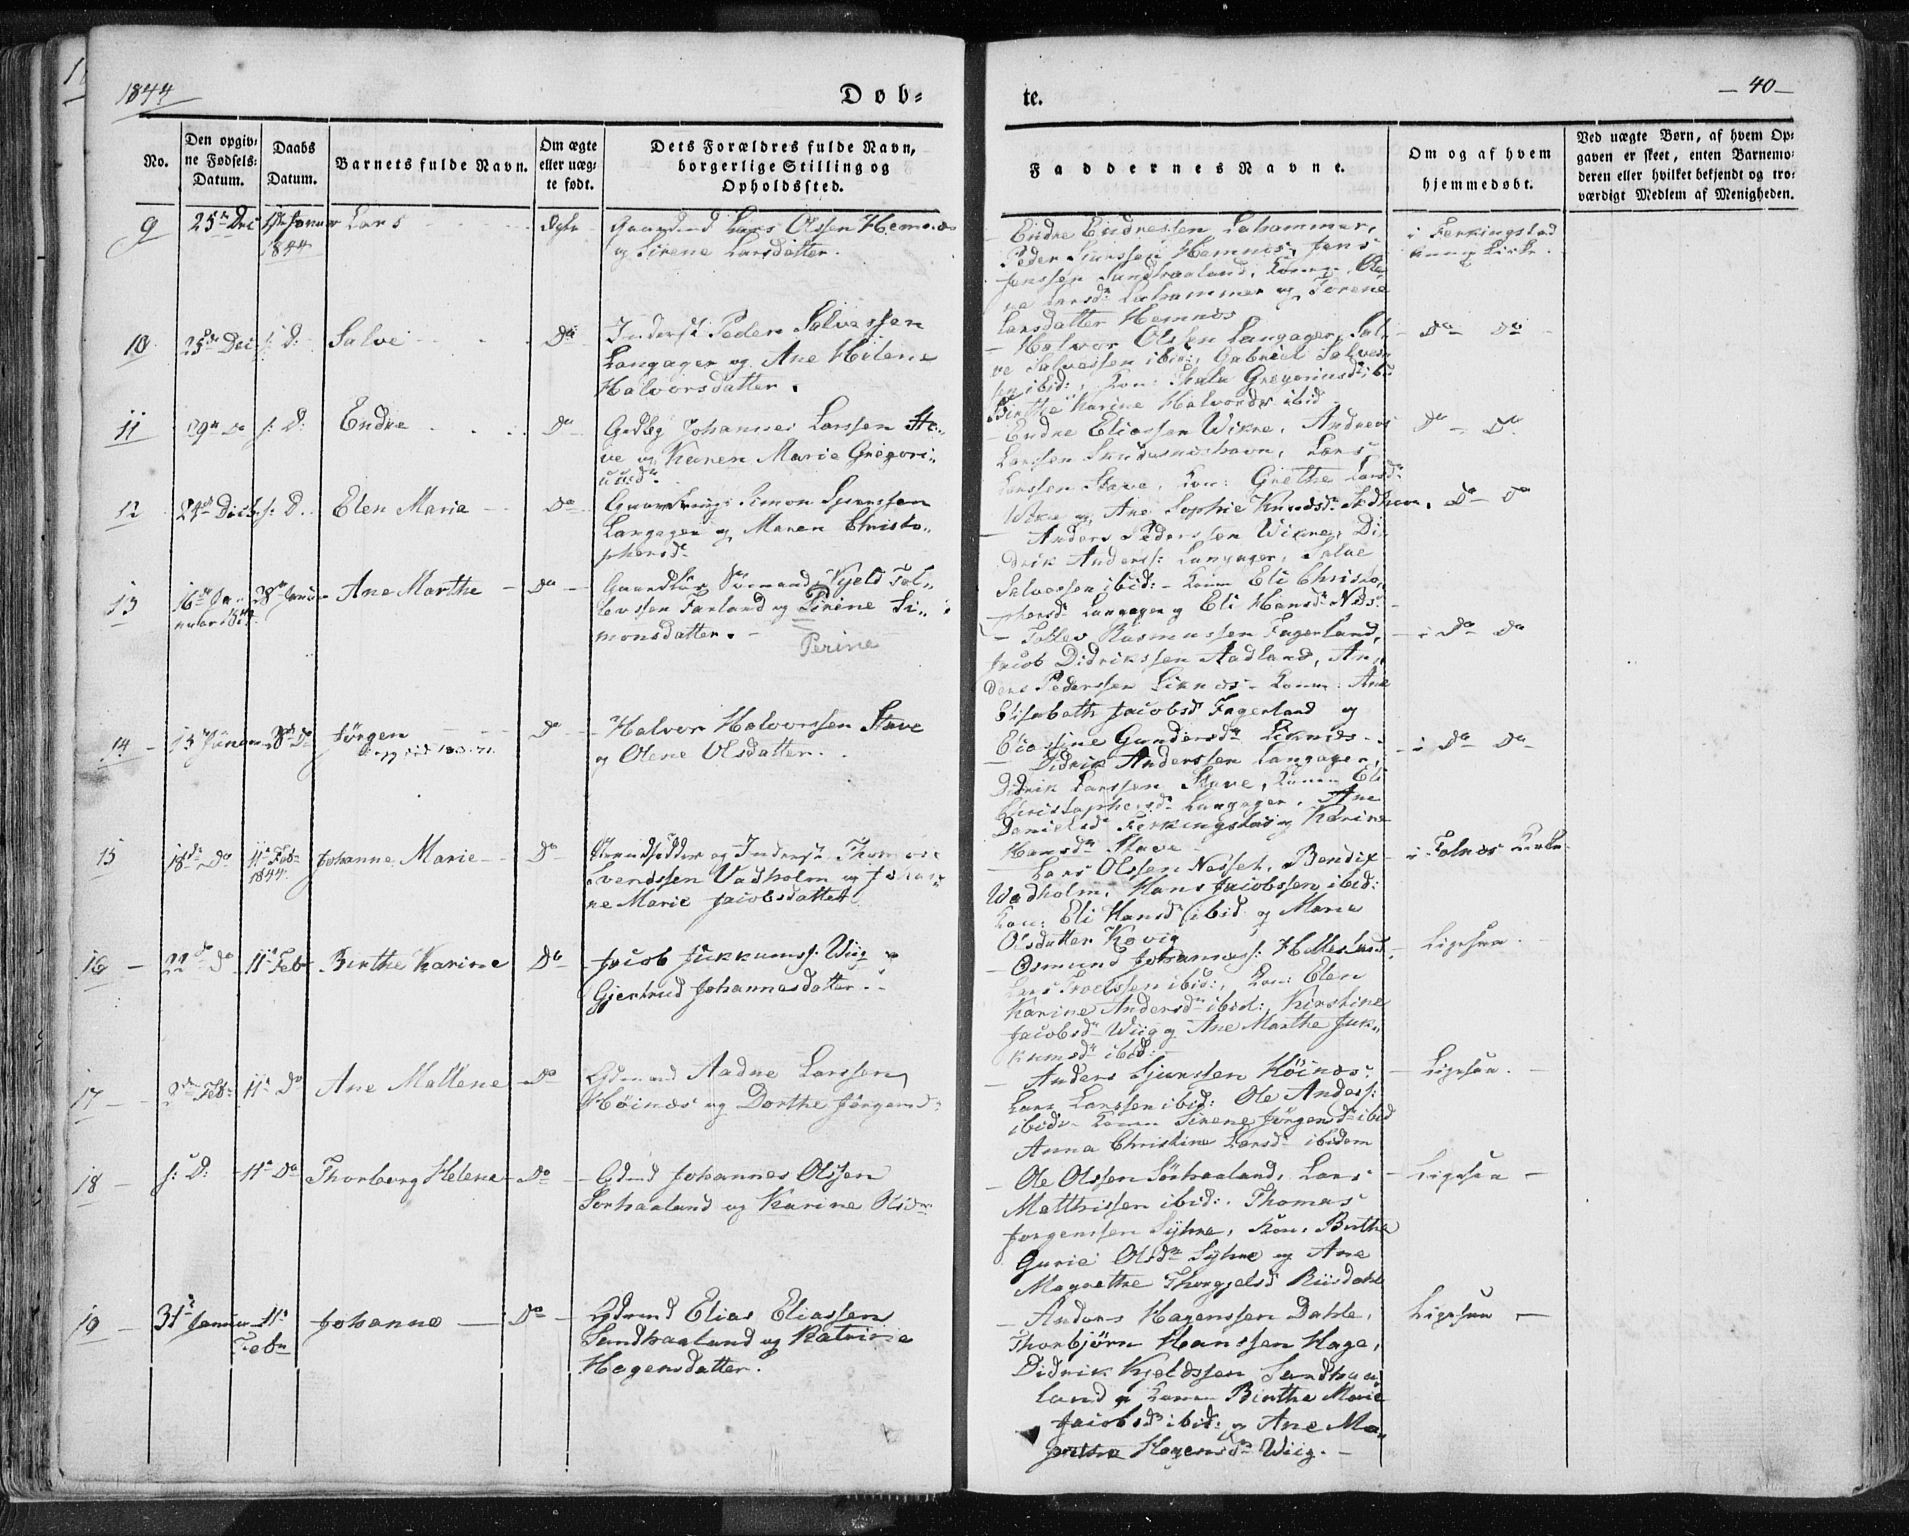 1844
Døb-
te.
— 40 —
No.
Den opgiv-
ne Fødsels-
Datum.
Daabs
Datum.
Barnets fulde Navn.
Om ægte
eller uæg-
te født.
Dets Forældres fulde Navn,
borgerlige Stilling og
Opholdssted.
Faddernes Navne.
Om og af hvem
hjemmedøbt.
Ved uægte Børn, af hvem Op-
gaven er skeet, enten Barnemo-
deren eller hvilket bekjendt og tro-
værdigt Medlem af Menigheden.
9
25de Dec
1844
Lars
Ægte
Gaardmd Lars Olssen Hemnæs
og Sirene Larsdatter.
Endre Endressen Lahammer,
Peder Siurssen Hemnæs, Jens
Jenssen Sundhaaland, Konen Ole
ne Larsdr Lahammer og Torene
Larsdatter Hemnæs
i Ferkingstad
Kirke.
10
25de Dec
s: D:
Salve
Do
Inderst Peder Salvessen
Langager og Ane Helene
Halvorsdatter.
Halvor Olssen Langager, Sal-
ve Salvessen ibid:, Gabriel Salves-
sen ibid:, Kon: Gregoriusdr ibid
Birthe Karine Halvorsdr ibid
Do — Do
11
29de Do
s: D:
Endre
Do
Johannes Larssen Sta-
ve og Karen Marie Gregori-
usdr
Endre Eliassen Wikre, Andreas
Larssen Skudesneshavn, Lars
Larssen Stave, Kon: Grethe Larsdr
Wikre og Ane Sophie Knudsdr
Do — Do
12
24de Decb
s: D.
Elen Maria
Do
Simon Siurssen
Langager og Maren Christo-
phersdr
Anders Pederssen Wikre, Di-
drik Anderss: Langager, Salve
Salvessen ibid: — Konen Eli Christo-
phersdr Langager og Eli Hansdr Næs
Do — Do
13
16de Ja-
nuar 1844
28de Januar
Ane Marthe
Do
Kjeld Tol-
levssen Farland og Pirine Si-
monsdatter.
Perine
Tollev Rasmussen Fagerland,
Jacob Didrikssen Aadland, An-
ders Pederssen Liknæs — Konen Ane
Elisabeth Jacobsdr Fagerland og
Eliassine Gundersdr Liknæs
i Do Do
14
13 Januar
28de Do
Jörgen
Do
Halvor Halvorssen Stave
og Olene Olsdatter.
Didrik Anderssen Langager,
Didrik Larssen Stave, Konen Eli
Christophersdr Langager, Ane
Danielsdr Ferkingstad og Karine
Hansdr Stave
i Do Do
15
18de Do
11te Feb
1844
Johanne Marie
Do
Strandsidder og Inderst Thomas
Svendssen Vadholm og Johan-
ne Marie Jacobsdatter
Lars Olssen Nesset, Bendix
Wadholm, Hans Jacobssen ibid:
Kon: Eli Hansdr ibid og Maria
Olsdatter Kovig
i Falnæs Kirke
16
22de Do
11te Feb
Birthe Karine
Do
Jacob Jukkumss: Wiig og
Gjertrud Johannesdatter.
Osmund Johanness: Hellesland,
Lars Troelssen ibid:, Kon: Elen
Karine Andersdr ibid:, Kirstine
Jacobsdr Wiig og Ane Marthe Juk-
kumsdr ibid:
Ligesaa.
17
2den Feb
11te Do
Ane Mallene
Do
Gdmand Aadne Larssen
Höinæs og Dorthe Jörgensdr
Anders Sjurssen Höinæs
Lars Larssen ibid: Ole Anderss:
ibid: Konen Sirene Jörgensdr ibid
Anna Christine Larsdr ibidem
Ligesaa.
18
s: D:
11te Do
Thorborg Helene
Do
Gdmd Johannes Olssen
Sörhaaland og Karine Olsdr
Ole Olssen Sörhaaland, Lars
Matthissen ibid:. Thomas
Jorgenssen Syhre, Kon: Birthe
Gurie Olsdr Syhre og Ane
Magrethe Thorgjelsd Riisdahl
Ligesaa
19
31te Januar
11te
Feb
Johanne
Do
Gdmd Elias Eliassen
Sundhaaland og Katrine
Hagensdatter.
Anders Hagenssen Dahle,
Thorbjörn Hanssen Hage,
Didrik Kjeldssen Sandhaa-
land, Konen Birthe Marie
Jacobsdr ibid: og Ane Ma-
grethe Hagensdr Wiig.
Ligesaa